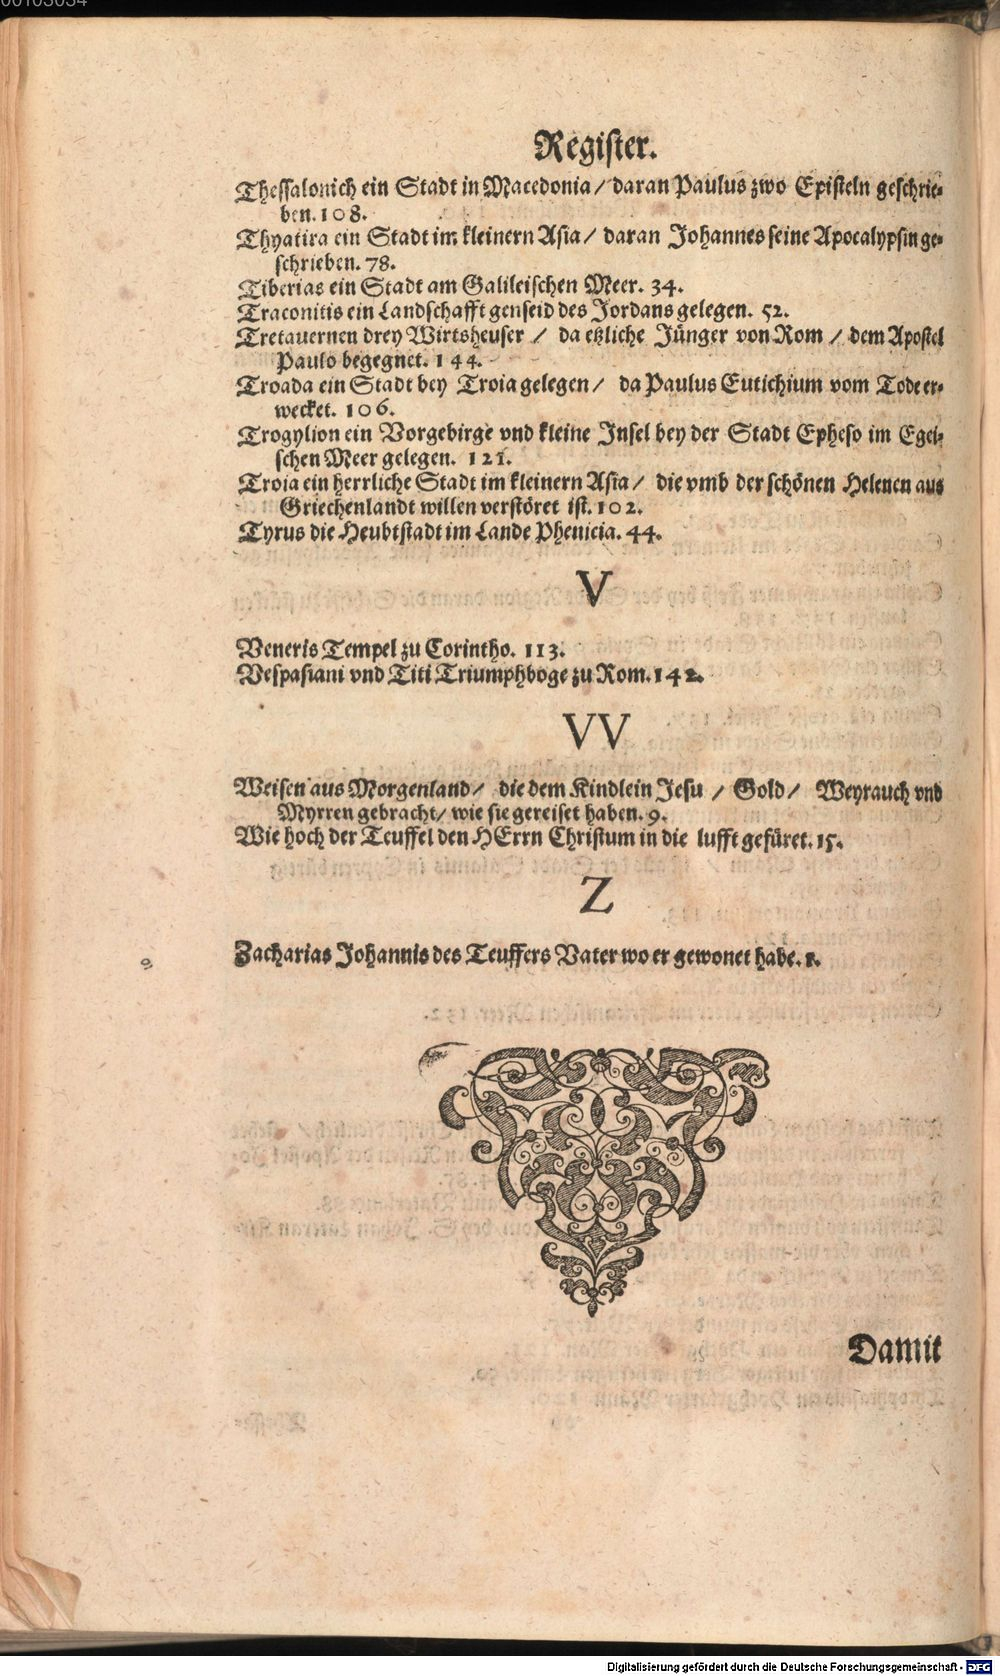 00103034
Register.
Thessalonich ein Stadt in Macedonia / daran Paulus zwo Episteln geschrie-
ben. 108.
Thyatira ein Stadt im kleinern Asia / daran Johannes seine Apocalypsin ge-
schrieben. 78.
Tiberias ein Stadt am Galileischen Meer. 34.
Traconitis ein Landschafft genseid des Jordans gelegen. 52.
Tretauernen drey Wirtsheuser / da etzliche Jünger von Rom / dem Apostel
Paulo begegnet. 144.
Troada ein Stadt bey Troia gelegen / da Paulus Eutichium vom Tode er-
wecket. 106.
Trogylion ein Vorgebirge vnd kleine Insel bey der Stadt Epheso im Egei-
schen Meer gelegen. 121.
Troia ein herrliche Stadt im kleinern Asia / die vmb der schönen Helenen aus
Griechenlandt willen verstöret ist. 102.
Tyrus die Heubtstadt im Lande Phenicia. 44.
V
Veneris Tempel zu Corintho. 113.
Vespasiani vnd Titi Triumphboge zu Rom. 142.
VV
Weisen aus Morgenland / die dem Kindlein Jesu / Gold / Weyrauch vnd
Myrren gebracht / wie sie gereiset haben. 9.
Wie hoch der Teuffel den HErrn Christum in die lufft gefüret. 15.
Z
Zacharias Johannis des Teuffers Vater wo er gewonet habe. 1.
Damit
Digitalisierung gefördert durch die Deutsche Forschungsgemeinschaft - DFG